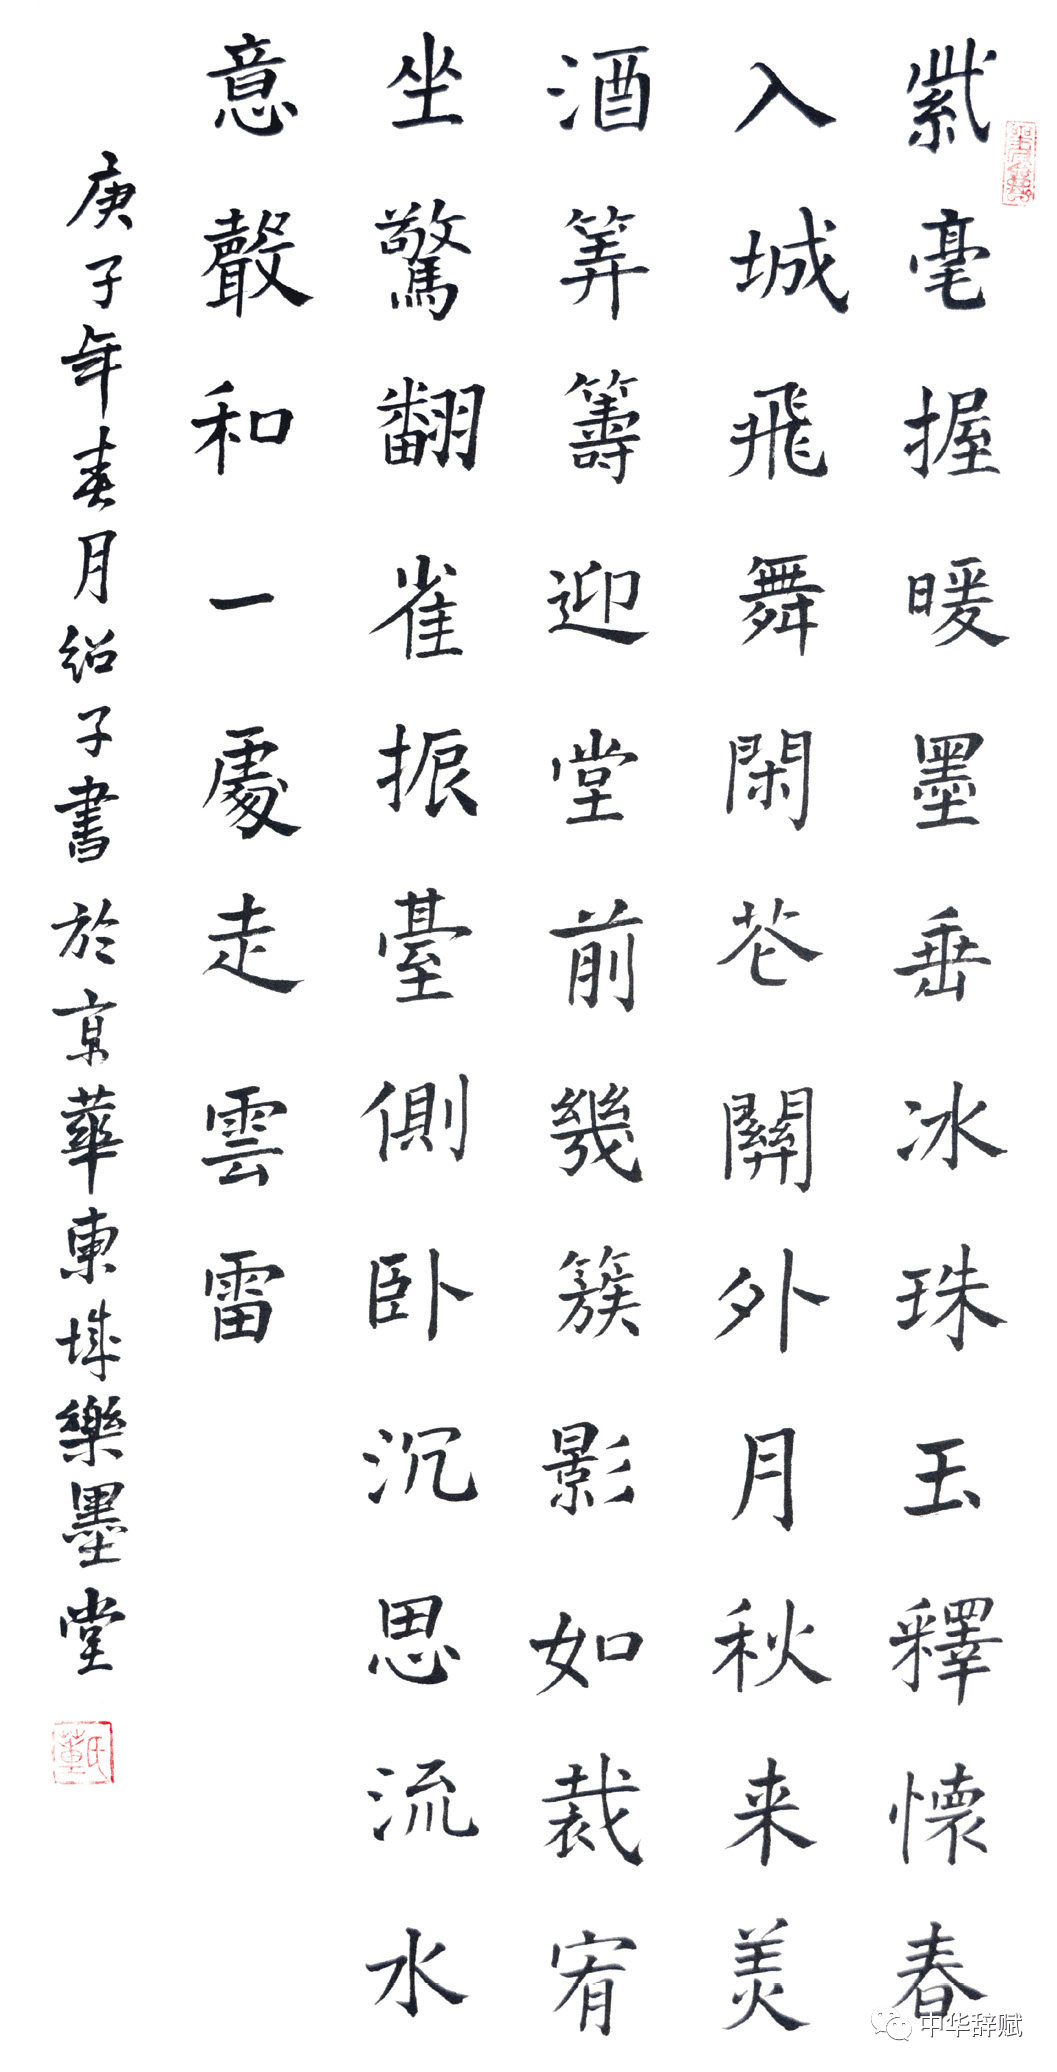 紫毫握暖墨垂冰珠玉釋懷春
入城飛舞閑花關外月秋来美
酒筭籌迎堂前幾簇影如裁宥
坐驚翻雀振臺側卧沉思流水
意聲和一處走雲雷
庚子年春月紹子書於京華東城樂墨堂
董氏
中华辞赋